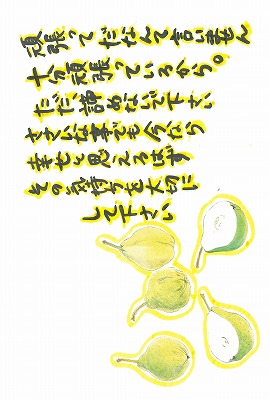 頑張ってだなんて言いません
十分頑張っているから。
ただ、諦めないで下さい
ささいな事でも今なり
幸せと思えるはず
その気持ちを大切に
して下さい